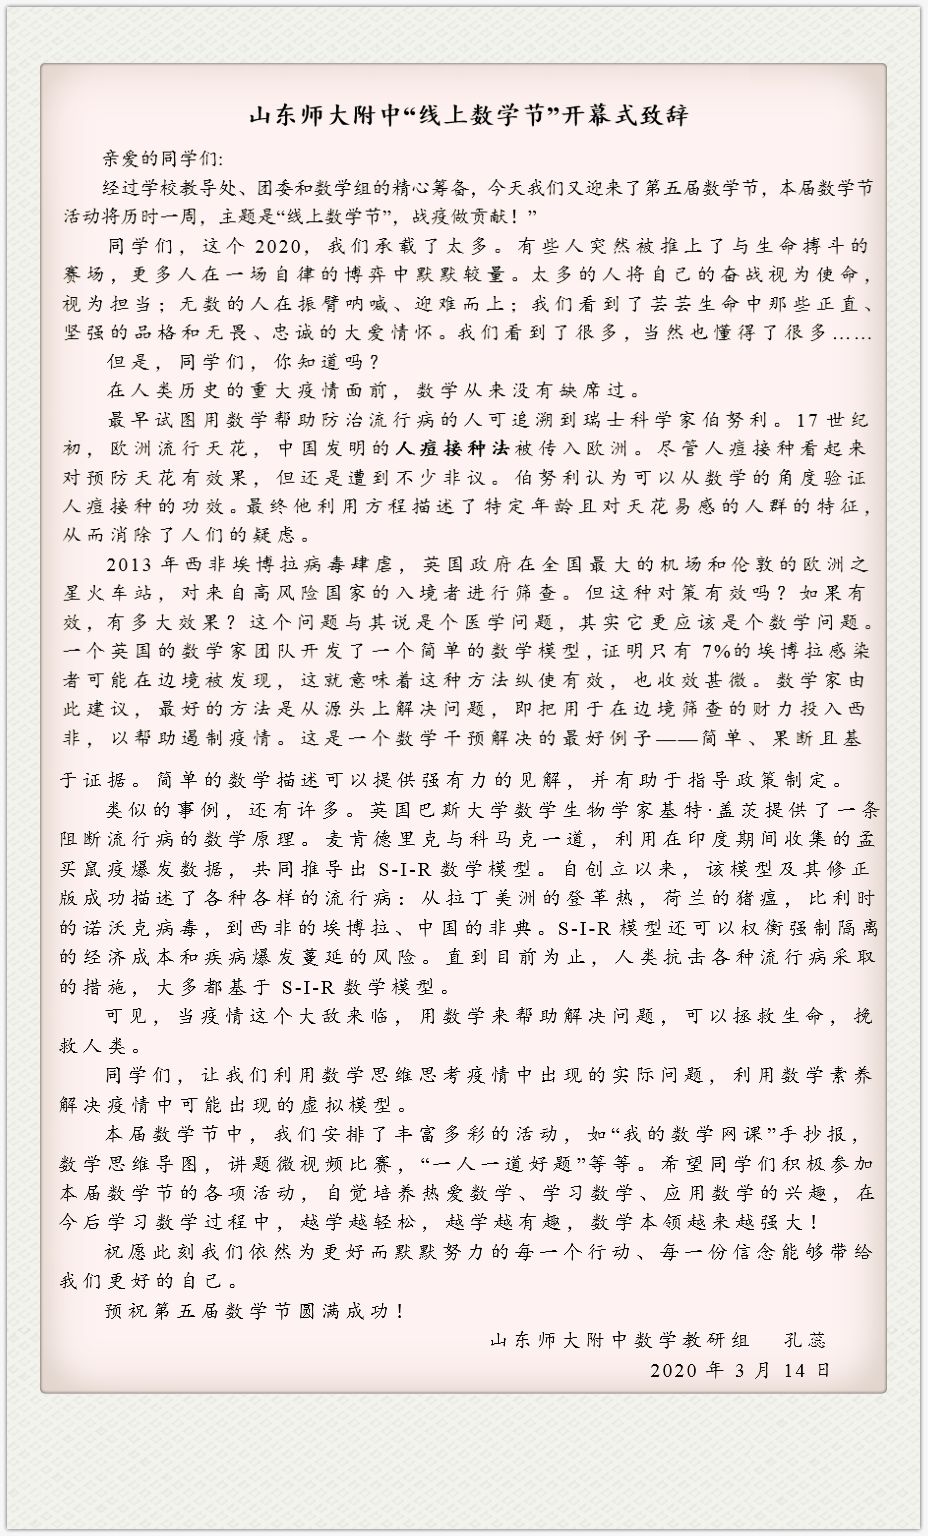 山东师大附中“线上数学节”开幕式致辞
亲爱的同学们:
经过学校教导处、团委和数学组的精心筹备，今天我们又迎来了第五届数学节，本届数学节
活动将历时一周，主题是“线上数学节”，战疫做贡献！”
同学们，这个 2020，我们承载了太多。有些人突然被推上了与生命搏斗的
赛场，更多人在一场自律的博弈中默默较量。太多的人将自己的奋战视为使命，
视为担当；无数的人在振臂呐喊、迎难而上；我们看到了芸芸生命中那些正直、
坚强的品格和无畏、忠诚的大爱情怀。我们看到了很多，当然也懂得了很多……
但是，同学们，你知道吗？
在人类历史的重大疫情面前，数学从来没有缺席过。
最早试图用数学帮助防治流行病的人可追溯到瑞士科学家伯努利。17 世纪
初，欧洲流行天花，中国发明的人痘接种法被传入欧洲。尽管人痘接种看起来
对预防天花有效果，但还是遭到不少非议。伯努利认为可以从数学的角度验证
人痘接种的功效。最终他利用方程描述了特定年龄且对天花易感的人群的特征，
从而消除了人们的疑虑。
2013 年西非埃博拉病毒肆虐，英国政府在全国最大的机场和伦敦的欧洲之
星火车站，对来自高风险国家的入境者进行筛查。但这种对策有效吗？如果有
效，有多大效果？这个问题与其说是个医学问题，其实它更应该是个数学问题。
一个英国的数学家团队开发了一个简单的数学模型，证明只有 7%的埃博拉感染
者可能在边境被发现，这就意味着这种方法纵使有效，也收效甚微。数学家由
此建议，最好的方法是从源头上解决问题，即把用于在边境筛查的财力投入西
非，以帮助遏制疫情。这是一个数学干预解决的最好例子——简单、果断且基
于证据。简单的数学描述可以提供强有力的见解，并有助于指导政策制定。
类似的事例，还有许多。英国巴斯大学数学生物学家基特·盖茨提供了一条
阻断流行病的数学原理。麦肯德里克与科马克一道，利用在印度期间收集的孟
买鼠疫爆发数据，共同推导出 S-I-R 数学模型。自创立以来，该模型及其修正
版成功描述了各种各样的流行病：从拉丁美洲的登革热，荷兰的猪瘟，比利时
的诺沃克病毒，到西非的埃博拉、中国的非典。S-I-R 模型还可以权衡强制隔离
的经济成本和疾病爆发蔓延的风险。直到目前为止，人类抗击各种流行病采取
的措施，大多都基于 S-I-R 数学模型。
可见，当疫情这个大敌来临，用数学来帮助解决问题，可以拯救生命，挽
救人类。
同学们，让我们利用数学思维思考疫情中出现的实际问题，利用数学素养
解决疫情中可能出现的虚拟模型。
本届数学节中，我们安排了丰富多彩的活动，如“我的数学网课”手抄报，
数学思维导图，讲题微视频比赛，“一人一道好题”等等。希望同学们积极参加
本届数学节的各项活动，自觉培养热爱数学、学习数学、应用数学的兴趣，在
今后学习数学过程中，越学越轻松，越学越有趣，数学本领越来越强大！
祝愿此刻我们依然为更好而默默努力的每一个行动、每一份信念能够带给
我们更好的自己。
预祝第五届数学节圆满成功！
山东师大附中数学教研组 孔蕊
2020 年 3 月 14 日